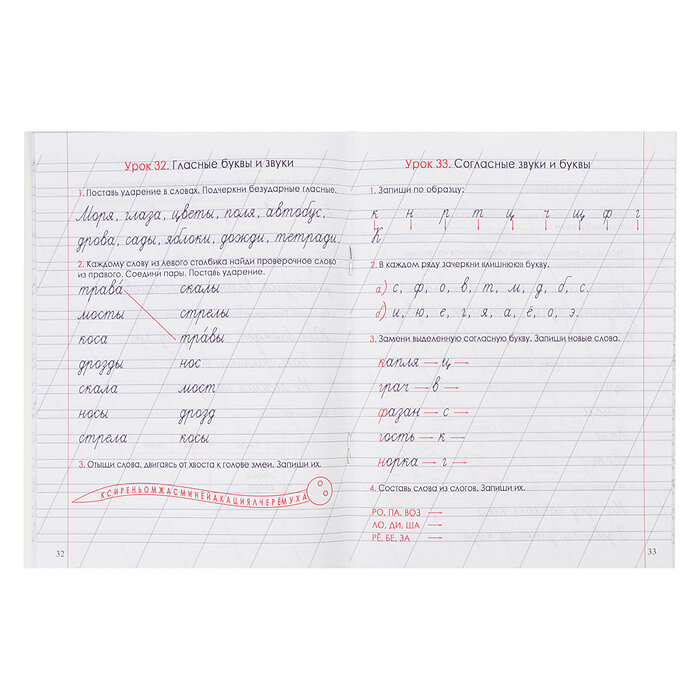 Урок 32. Гласные буквы и звуки
1. Поставь ударение в словах. Подчеркни безударные гласные.
Моря, глаза, цветы, поля, автобус,
дрова, сады, яблоки, дожди, тетради.
2. Каждому слову из левого столбика найди проверочное слово
из правого. Соедини пары. Поставь ударение.
трава́ скалы
мосты стрелы
коса тра́вы
дрозды нос
скала мост
носы дрозд
стрела косы
3. Отыщи слова, двигаясь от хвоста к голове змеи. Запиши их.
КСИРЕНЬОМЖАСМИНЕЙАКАЦИЯЛЧЕРЁМУХА
32
Урок 33. Согласные звуки и буквы
1. Запиши по образцу:
к н р т щ ч щ ф г
К
2. В каждом ряду зачеркни «лишнюю» букву.
а) с, ф, о, в, т, м, д, б, с.
б) и, ю, е, г, я, а, ё, о, э.
3. Замени выделенную согласную букву. Запиши новые слова.
капля → ц →
грач → в →
фазан → с →
гость → к →
норка → г →
4. Составь слова из слогов. Запиши их.
РО, ПА, ВОЗ →
ЛО, ДИ, ША →
РЁ, БЕ, ЗА →
33